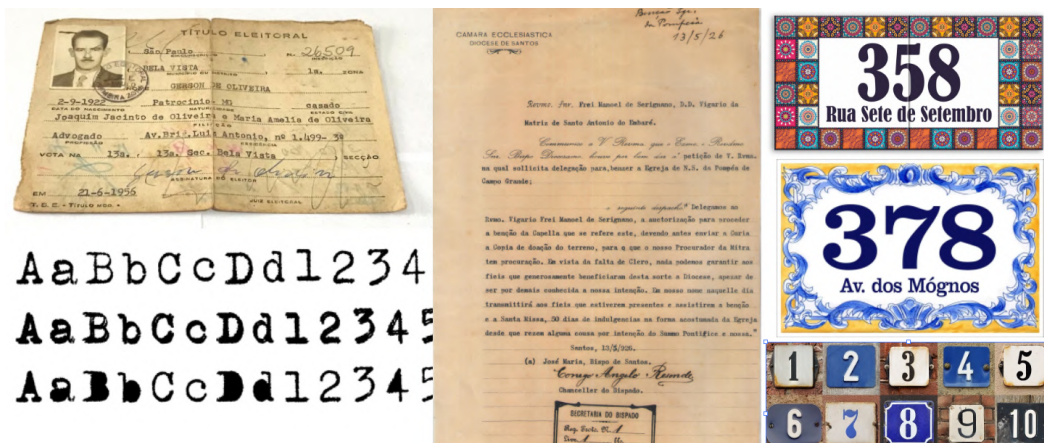 TÍTULO ELEITORAL
São Paulo
Nº 26509
BELA VISTA
1a. ZONA
GERSON DE OLIVEIRA
2-9-1922 Patrocinio MG casado
DATA DO NASCIMENTO NATURALIDADE ESTADO CIVIL
Joaquim Jacinto de Oliveira e Maria Amelia de Oliveira
FILIAÇÃO
Advogado Av.Brig.Luiz Antonio, nº 1.499- 3º
PROFISSÃO RESIDÊNCIA
VOTA NA 13a. 13a. Sec. Bela Vista SECÇÃO
ASSINATURA DO ELEITOR
EM 21-6-1956
JUIZ ELEITORAL
T. R. E. - TÍTULO MOD.
AaBbCcDd1234
AaBbCcDd12345
AaBbCcDd12345
da Pompeia
13/5/26
CAMARA ECCLESIASTICA
DIOCESE DE SANTOS
Frei Manoel de Serignano, D.D. Vigario da
Matriz de Santo Antonio do Embaré.
Communico a V. Revma. que o Exmo. e Revdmo.
Snr. Bispo Diocesano houve por bem dar a petição de V. Revma.
na qual sollicita delegação para,benzer a Egreja de N.S. do Pompéa de
Campo Grande;
o seguinte despacho:" Delegamos ao
Revmo. Vigario Frei Manoel de Serignano, a auctorização para proceder
a benção da Capella que se refere este, devendo antes enviar a Curia
a Copia de doação do terreno, para o que o nosso Procurador da Mitra
tem procuração. Em vista da falta de Clero, nada podemos garantir aos
fieis que generosamente beneficiaram desta sorte a Diocese, apezar de
ser por demais conhecida a nossa intenção. Em nosso nome naquelle dia
transmittirá aos fieis que estiverem presentes e assistirem a benção
e a Santa Missa, 50 dias de indulgencias na forma acostumada da Egreja
desde que rezem alguma cousa por intenção do Summo Pontifice e nossa."
Santos, 13/5/926.
(a) José Maria, Bispo de Santos.
Conego Angelo
Chanceller do Bispado.
SECRETARIA DO BISPADO
358
Rua Sete de Setembro
378
Av. dos Mógnos
1 2 3 4 5
6 7 8 9 10